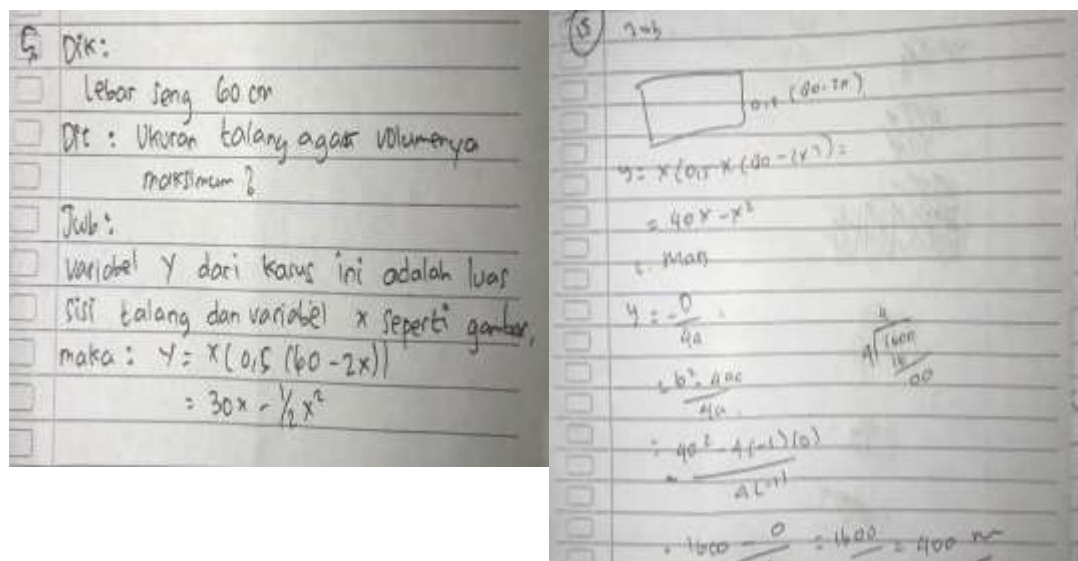 5. Dik:
Lebar seng 60 cm
Dit : Ukuran talang agar volumenya
maksimum ?
Jwb:
variabel Y dari kasus ini adalah luas
sisi talang dan variabel x seperti gambar,
maka : Y = x(0,5 (60 - 2x))
= 30x - 1/2 x²
15
(80-2x)
y = x(0,5 x (80 - 2x²) =
= 40x - x²
Y = -D
4a
= b² - 4ac
4a
= 40² - 4(-1)(0)
4(-1)
4
4√1600
16
00
= 1600 - 0 = 1600 = 400 m